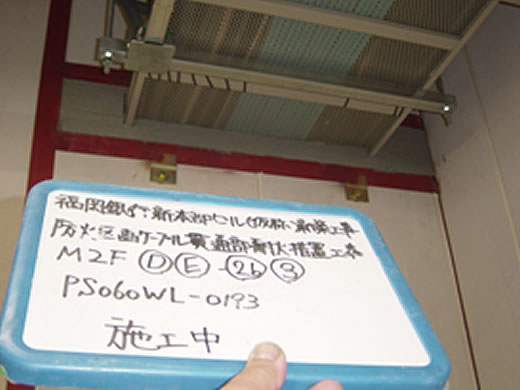 福岡銀行新本部ビル(仮称)新築工事
防火区画ケーブル貫通部耐火措置工事
M2F Ⓓ Ⓔ - 2b 3
PS060WL-0193
施工中